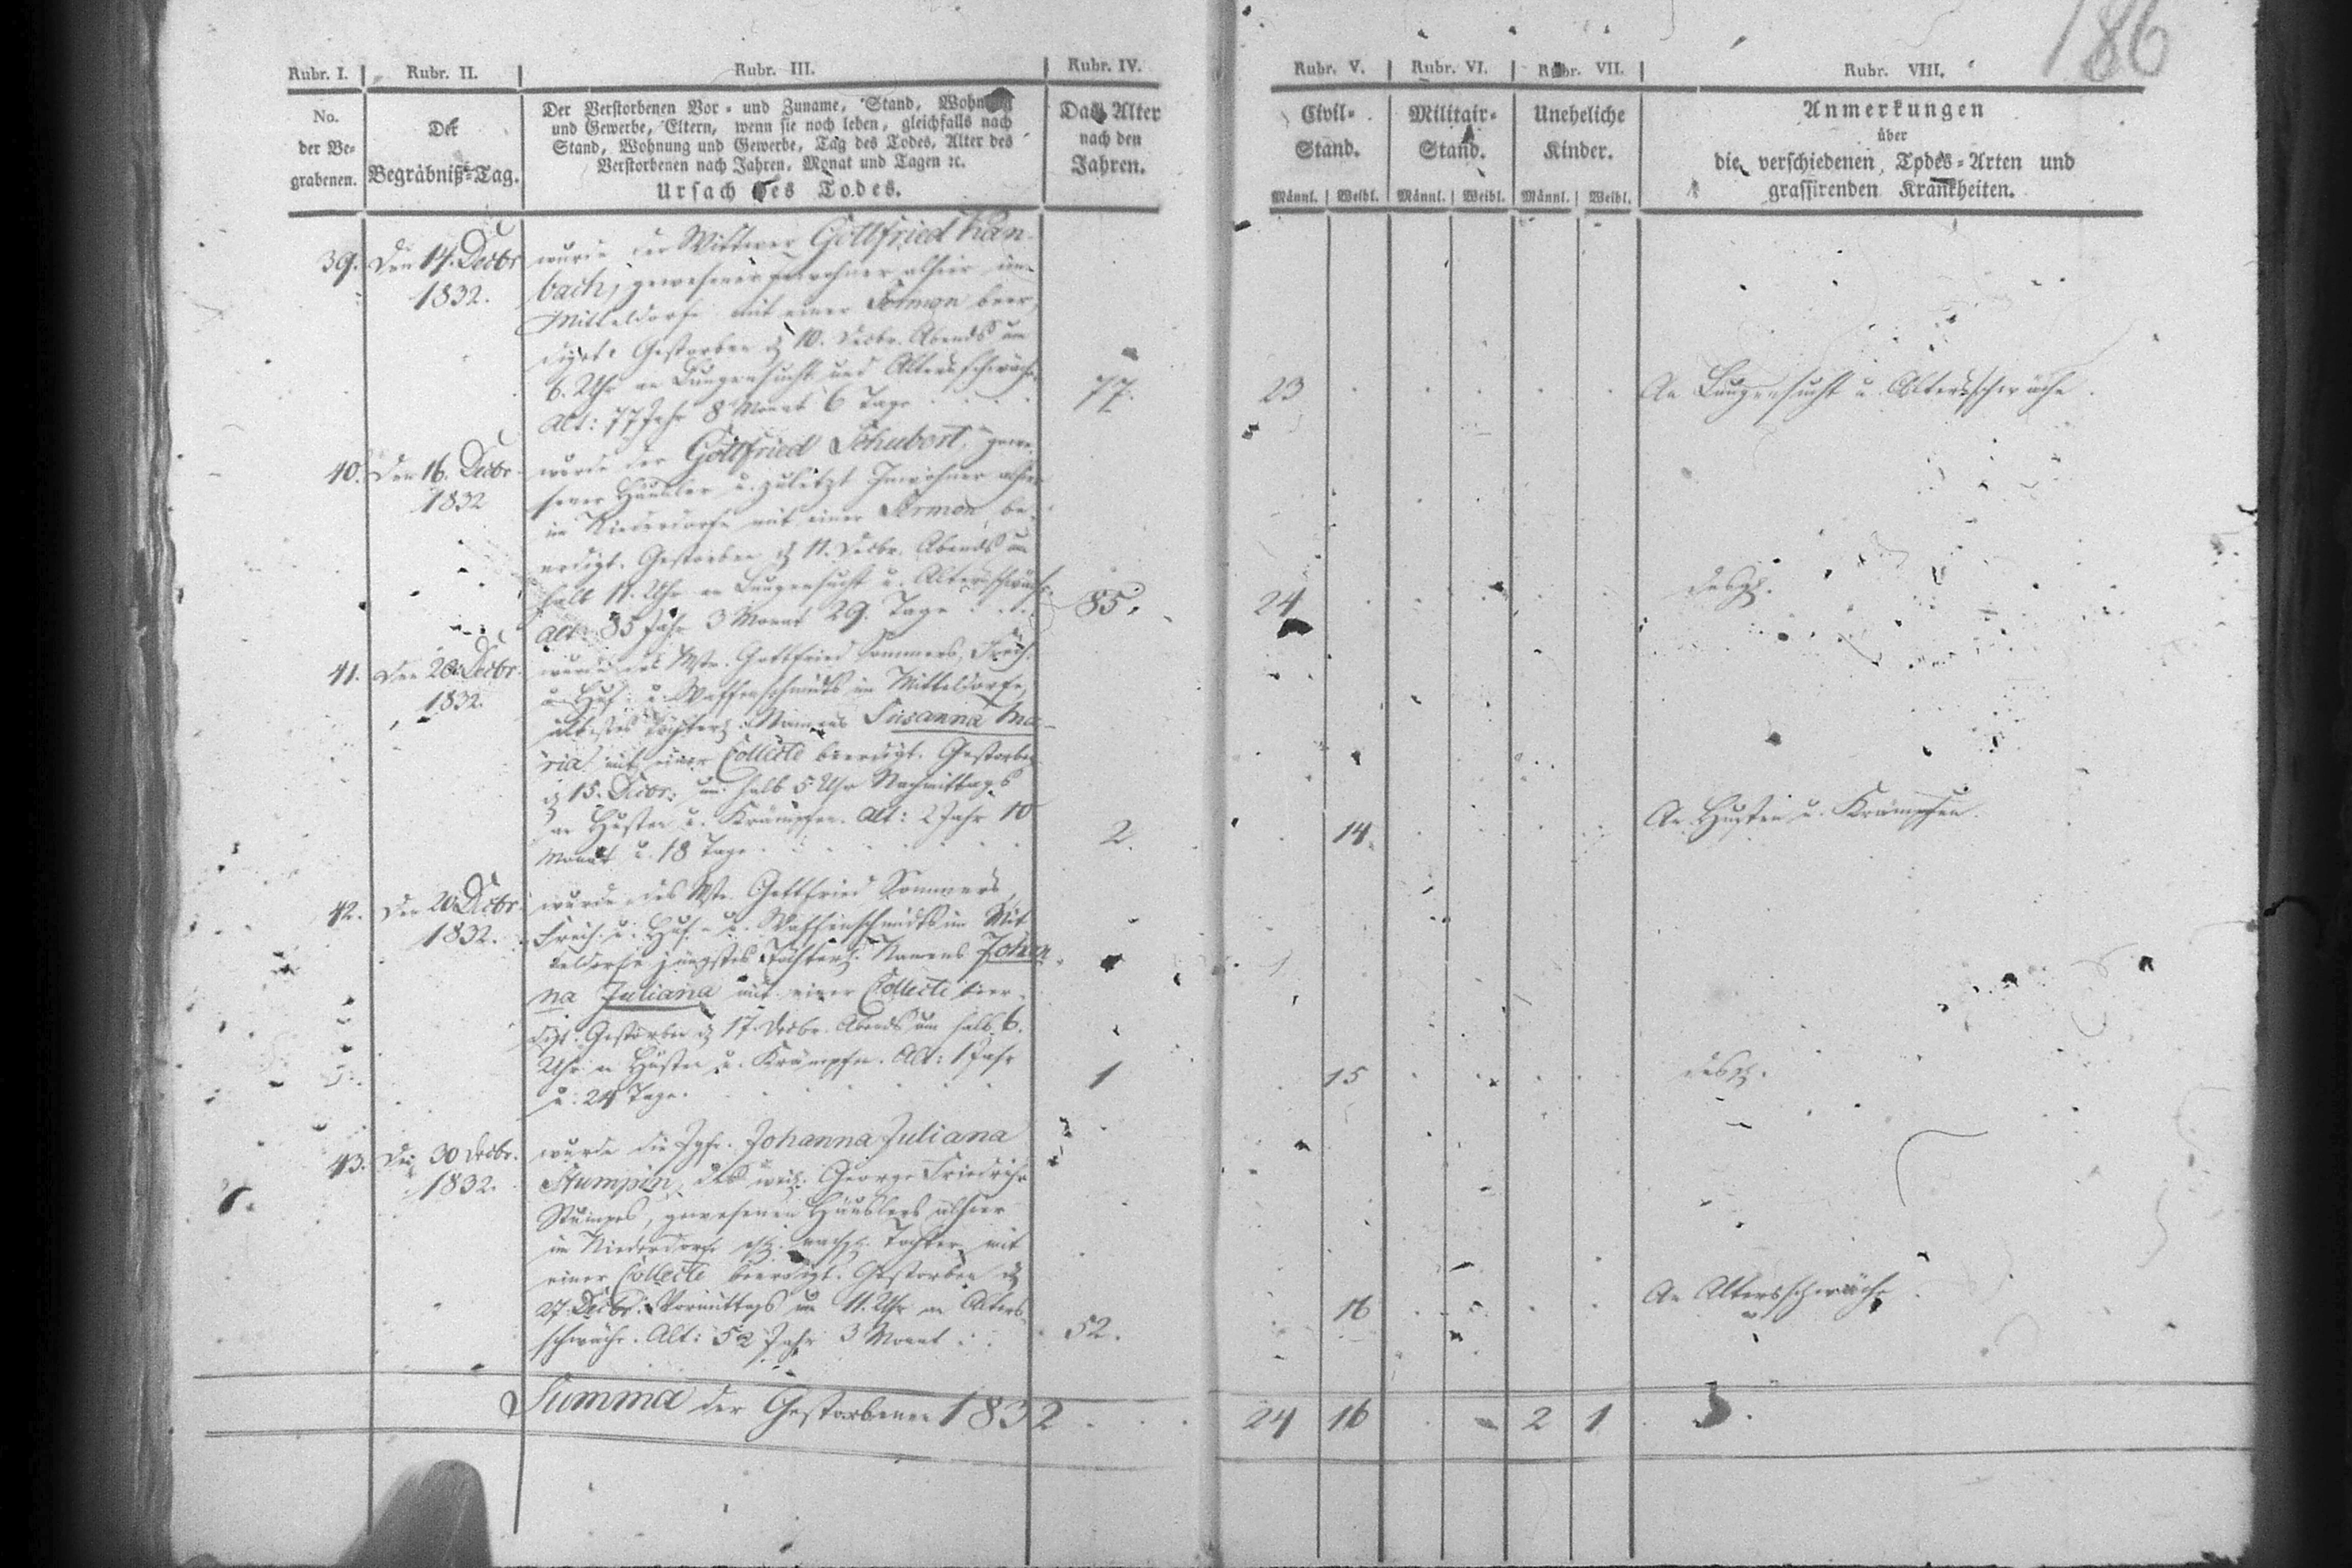 186
Rubr. I. Rubr. II. Rubr. III. Rubr. IV. Rubr. V. Rubr. VI. Rubr. VII. Rubr. VIII.
No.
der Be-
grabenen.
Der
Begräbniß-Tag.
Der Verstorbenen Vor- und Zuname, Stand, Wohnung
und Gewerbe, Eltern, wenn sie noch leben, gleichfalls nach
Stand, Wohnung und Gewerbe, Tag des Todes, Alter des
Verstorbenen nach Jahren, Monat und Tagen ꝛc.
Ursach des Todes.
Das Alter
nach den
Jahren.
Civil-
Stand.
Männl. Weibl.
Militair-
Stand.
Männl. Weibl.
Uneheliche
Kinder.
Männl. Weibl.
Anmerkungen
über
die verschiedenen Todes-Arten und
grassirenden Krankheiten.
39. Den 14. Decbr
1832.
wurde der Wittwer Gottfried Han-
bach, gewesener Inwohner alhier im
Mitteldorfe mit einer Sermon beer-
digt. Gestorben d. 10. Decbr. Abends um
6. Uhr an Lungensucht und Altersschwäche
Alt: 77 Jahr 8 Monat 6 Tage
77. 23 An Lungensucht u. Altersschwäche.
40. Den 16. Decbr
1832
wurde der Gottfried Schubert, gewe-
sener Häusler u. zuletzt Inwohner alhier
im Niederdorfe mit einer Sermon be-
erdigt. Gestorben d. 11. Decbr. Abends um
halb 11. Uhr an Lungensucht u. Altersschwäche
Alt: 85 Jahr 3 Monat 29. Tage
85. 24 desgl.
41. Den 20. Decbr.
1832.
wurde des Mstr. Gottfried Sommers, Freih.
u. Huf- u. Waffenschmidts im Mitteldorfe,
ältestes Töchterl. Namens Susanna Ma-
ria mit einer Collecte beerdigt. Gestorben
d. 15. Decbr. um halb 5 Uhr Nachmittags
an Husten u. Krämpfen. Alt: 2 Jahr 10
Monat u. 18 Tage
2. 14. An Husten u. Krämpfen.
42. Den 20. Decbr
1832.
wurde des Mstr. Gottfried Sommers,
Freih. u. Huf- u. Waffenschmidts im Mit-
teldorfe jüngstes Töchterl. Namens Johan-
na Juliana mit einer Collecte beer-
digt. Gestorben d. 17. Decbr. Abends um halb 6.
Uhr an Husten u. Krämpfen. Alt: 1 Jahr
u. 24 Tage.
1 15 desgl.
43. Den 30 Decbr.
1832.
wurde die Jgfr. Johanna Juliana
Stumpin, des weil. George Friedrich
Stumpes, gewesenen Häuslers alhier
im Niederdorfe nachgl. Tochter mit
einer Collecte beerdigt. Gestorben d.
27. Decbr. Vormittags um 11. Uhr an Alters-
schwäche. Alt: 52 Jahr 3 Monat
52. 16 An Altersschwäche
Summa der Gestorbenen 1832 24 16 2 1